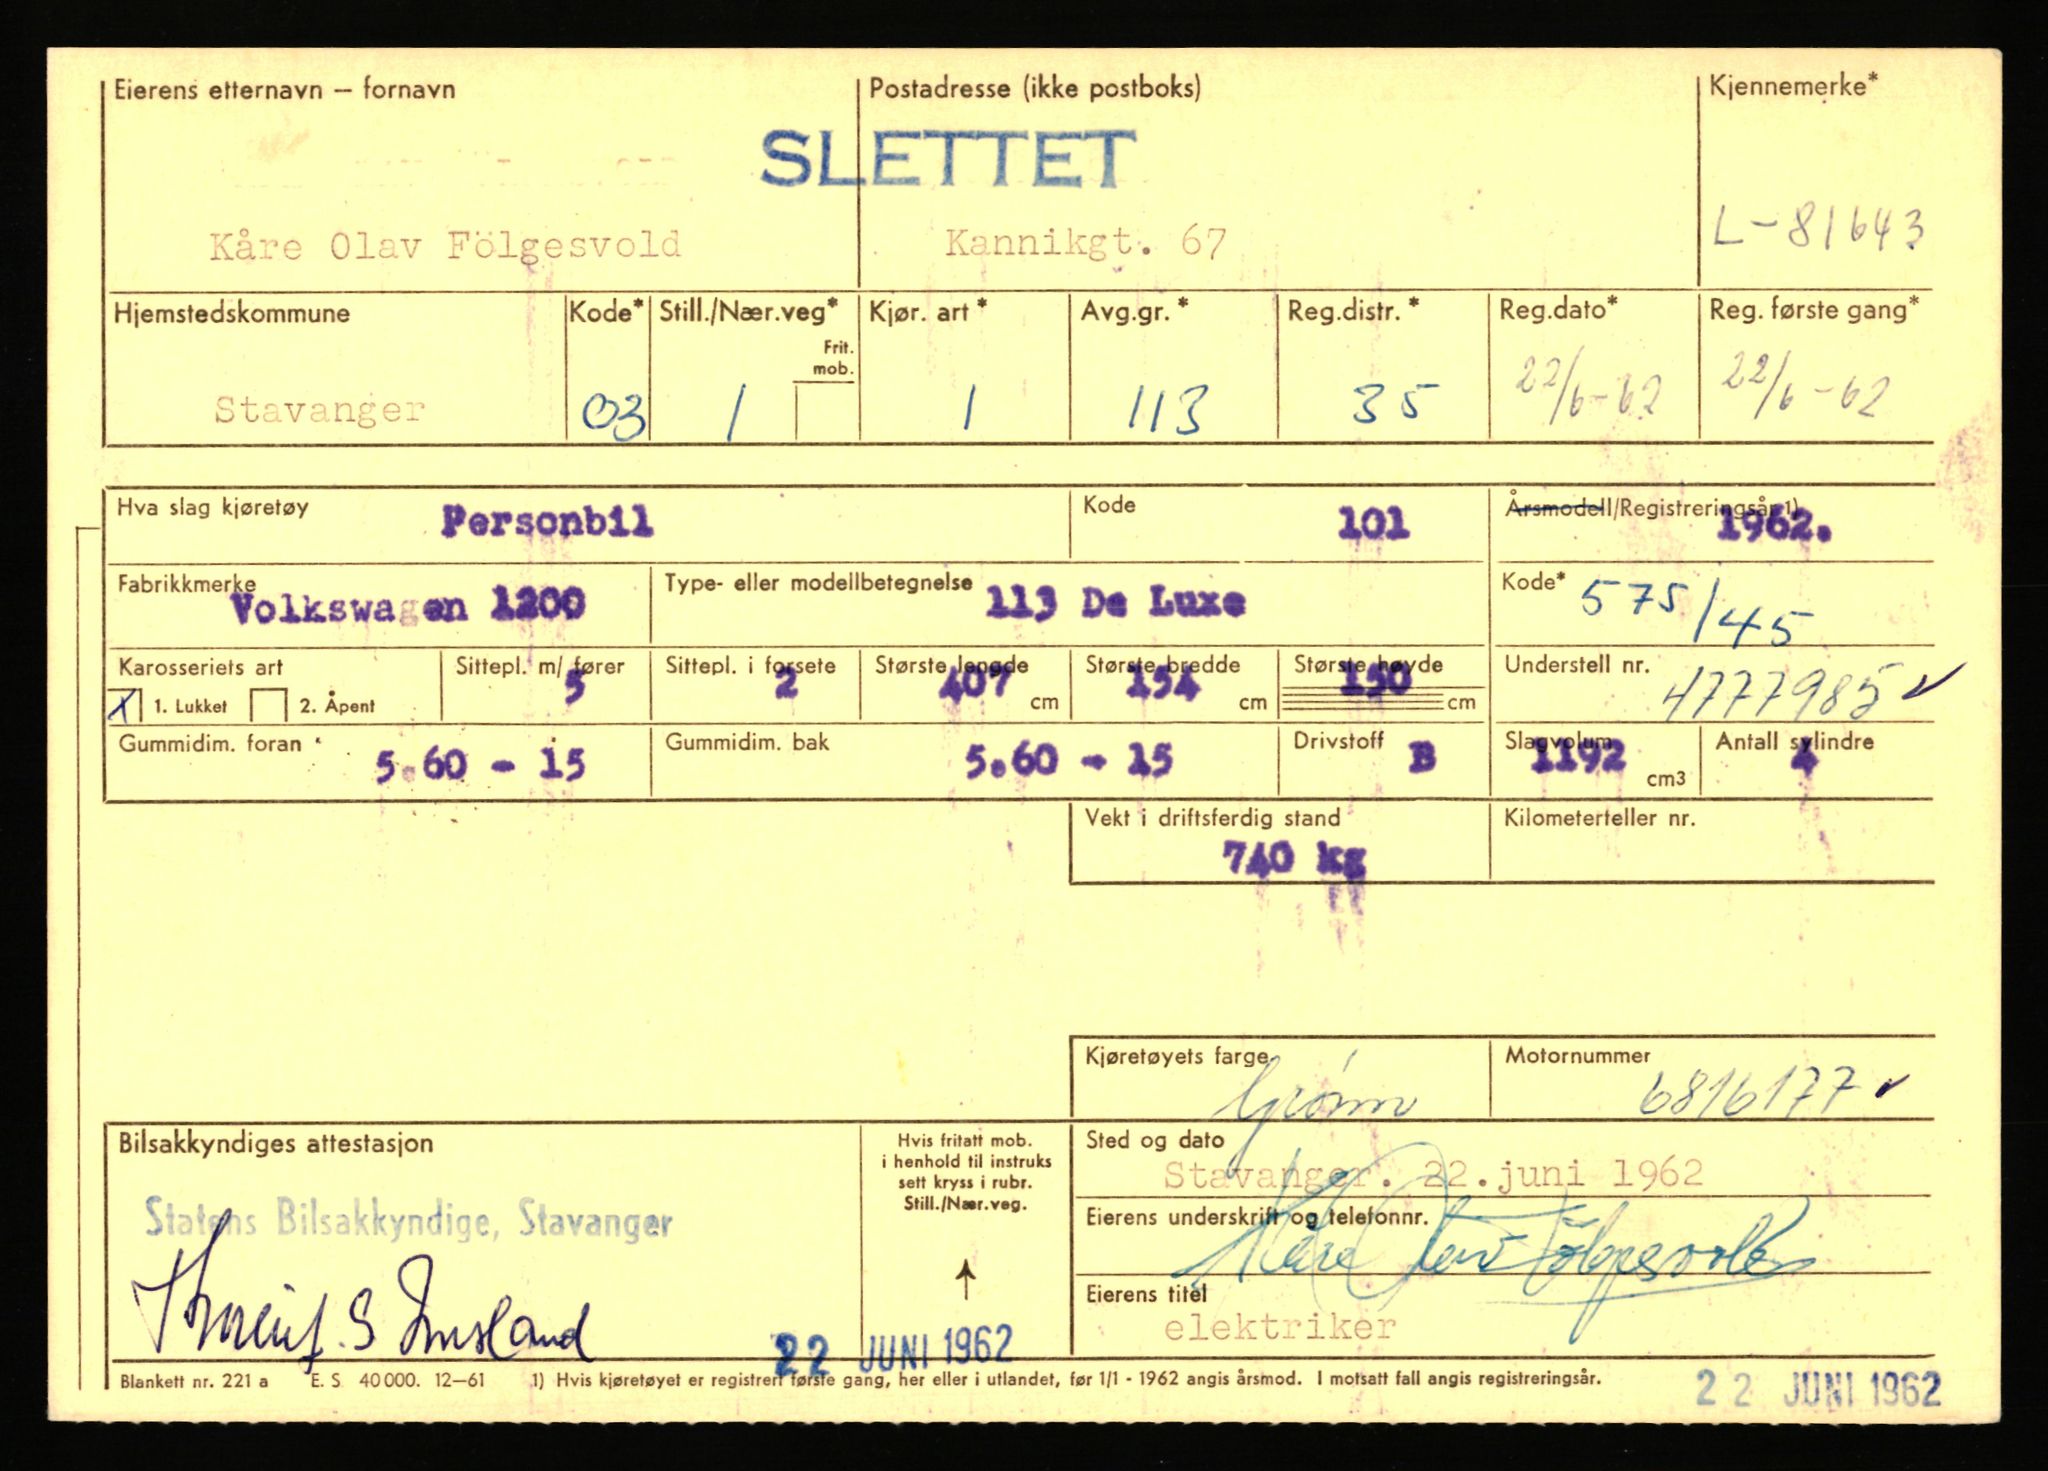 Eierens etternavn – fornavn
Postadresse (ikke postboks)
Kjennemerke*
SLETTET
Kåre Olav Fölgesvold
Kannikgt. 67
L-81643
Hjemstedskommune
Kode*
Still./Nær.veg*
Frit. mob.
Kjør. art *
Avg.gr. *
Reg.distr. *
Reg.dato*
Reg. første gang*
Stavanger
03
1
1
113
35
22/6-62
22/6-62
Hva slag kjøretøy
Personbil
Kode
101
Årsmodell/Registreringsår 1)
1962.
Fabrikkmerke
Volkswagen 1200
Type- eller modellbetegnelse
113 De Luxe
Kode*
575/45
Karosseriets art
X 1. Lukket 2. Åpent
Sittepl. m/ fører
5
Sittepl. i forsete
2
Største lengde
407 cm
Største bredde
154 cm
Største høyde
150 cm
Understell nr.
4777985 ✓
Gummidim. foran
5.60 - 15
Gummidim. bak
5.60 - 15
Drivstoff
B
Slagvolum
1192 cm3
Antall sylindre
4
Vekt i driftsferdig stand
740 kg
Kilometerteller nr.
Kjøretøyets farge
Grönn
Motornummer
6816177 ✓
Bilsakkyndiges attestasjon
Statens Bilsakkyndige, Stavanger
Hvis fritatt mob.
i henhold til instruks
sett kryss i rubr.
Still./Nær.veg.
22 JUNI 1962
Sted og dato
Stavanger. 22.juni 1962
Eierens underskrift og telefonnr.
Kåre Olav Fölgesvold
Eierens titel
elektriker
Blankett nr. 221 a E. S. 40 000. 12–61 1) Hvis kjøretøyet er registrert første gang, her eller i utlandet, før 1/1 - 1962 angis årsmod. I motsatt fall angis registreringsår.
22 JUNI 1962